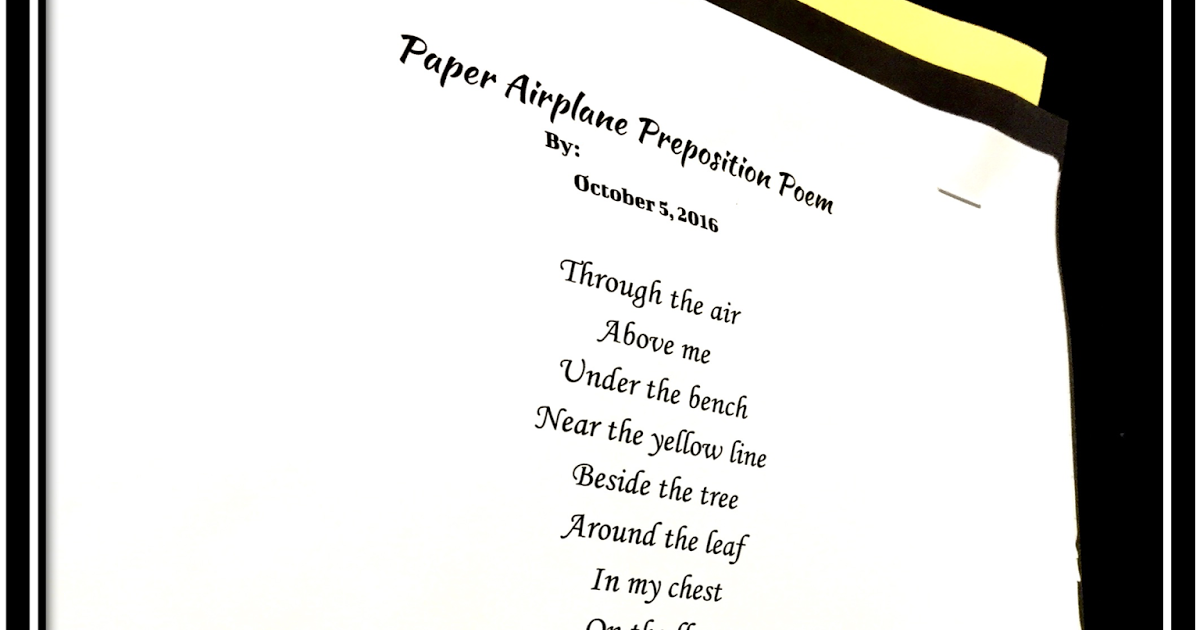 Paper Airplane Preposition Poem
By:
October 5, 2016
Through the air
Above me
Under the bench
Near the yellow line
Beside the tree
Around the leaf
In my chest
On the